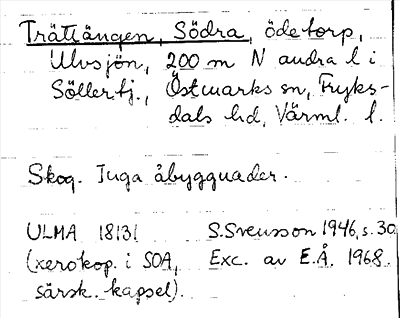 Trättängen, Södra, ödetorp,
Ulvsjön, 200 m N andra l i
Söllertj., Östmarks sn, Fryks-
dals hd, Värml. l.
Skog. Inga åbyggnader.
ULMA 18131 S. Svensson 1946, s. 30
(xerokop. i SOA, Exc. av E.Å. 1968.
särsk. kapsel).